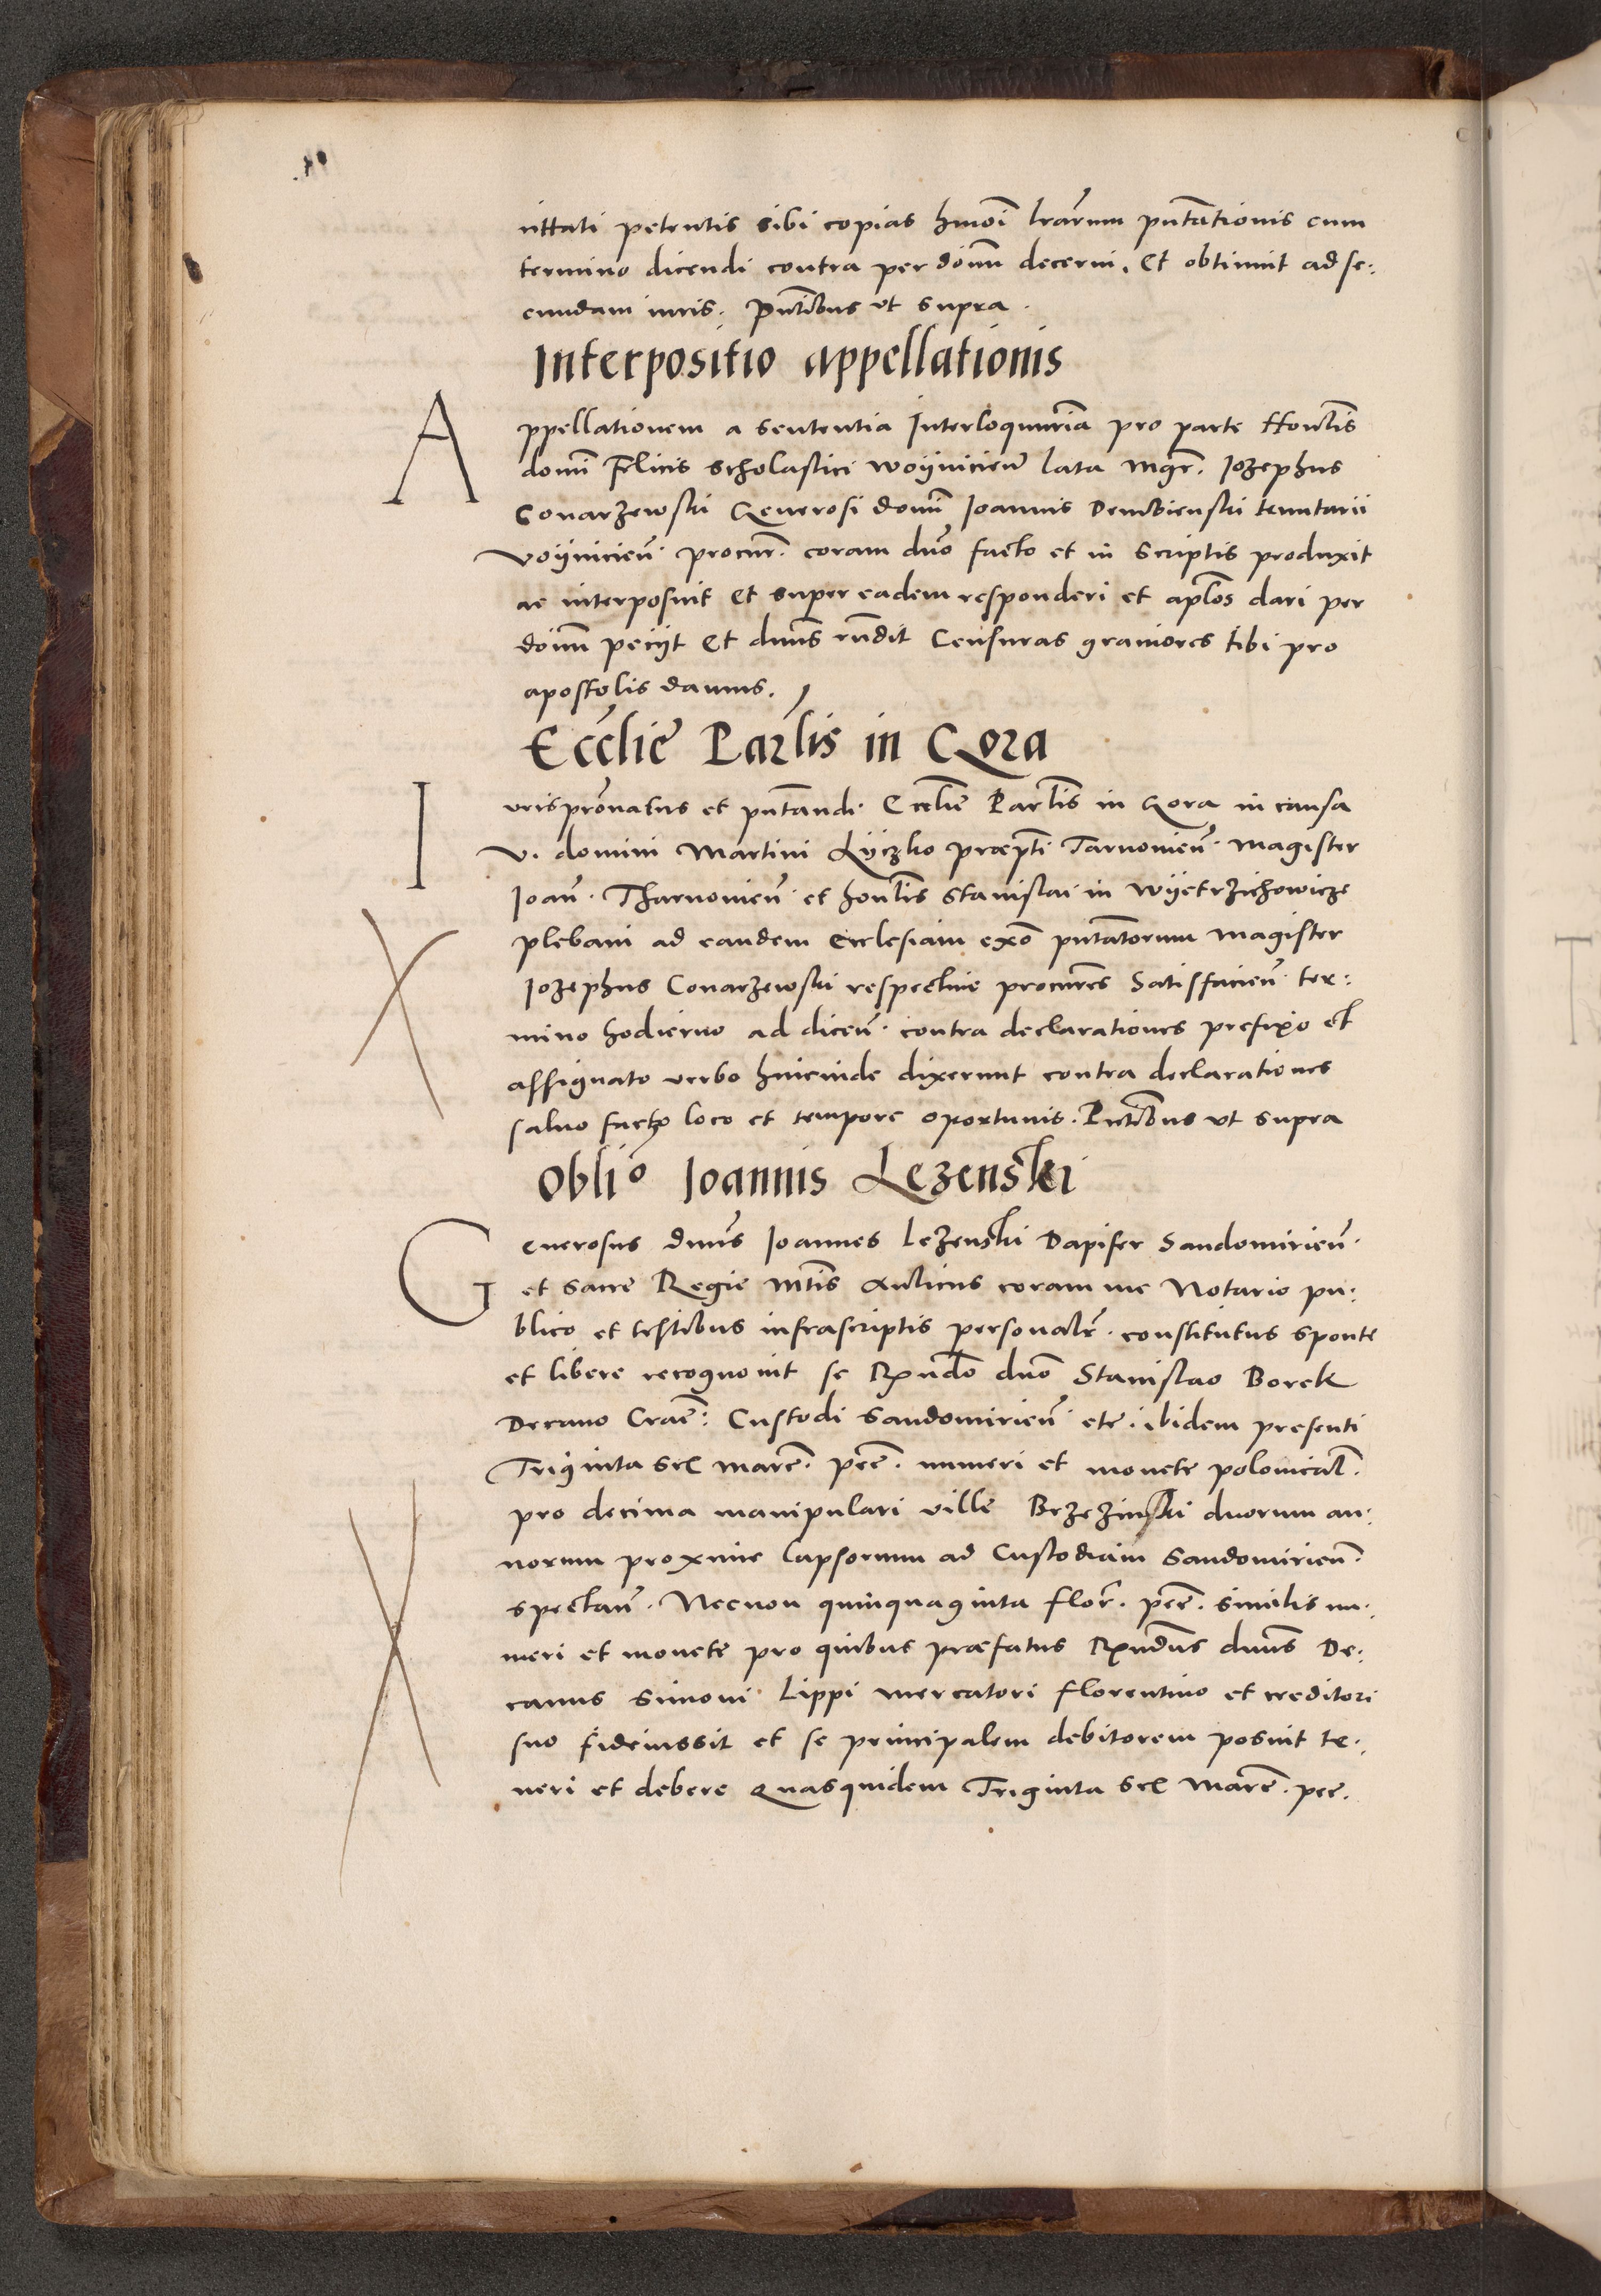 uttati petentis sibi copias hmoi lrarum pntationis cum
termino dicendi contra per donu decerni. Et obtinuit ad se:
cundam iuris. Pntibus ut supra.
Interpositio appellationis
Appellationem a sententia Interloquutoria pro parte Honlis
domi Felicis scholastici woynicien lata Mgr. Jozephus
Conarzewski Generosi domi Joannis Dembienski tenutarii
Voynicien. procur. coram dno facto et in scriptis produxit
ac interposuit Et super eadem responderi et aplos dari per
donu peciit Et dnus rndit Censuras graviores tibi pro
apostolis damus.
Ecclie Parlis in Gora
Iurispronatus et pntandi. Ecclie Parlis in Gora in causa
V. domini Martini Lyczko præpti Tarnovien. Magister
Joan. Tharnovien. et honlis Stanislai in Wyetrzichowicze
plebani ad eandem Ecclesiam exo pntatorum Magister
Jozephus Conarzewski respective procures Satisfacien. ter:
mino hodierno ad dicen. contra declarationes prefixo et
assignato verbo hincinde dixerunt contra declarationes
salvo facto loco et tempore oportunis. Pntibus ut supra
Oblio Joannis Lezenski
Generosus dnus Joannes Lezenski Dapifer Sandomirien.
et Sacre Regie Mtis Aulicus coram me Notario pu:
blico et testibus infrascriptis personalr. constitutus sponte
et libere recognovit se Rndo dno Stanislao Borek
Decano Crac: Custodi Sandomirien. etc. ibidem presenti
Triginta sex marc. pec. numeri et monete polonical.
pro decima manipulari ville Brzezinski duorum an:
norum proxime lapsorum ad Custodiam Sandomirien.
spectan. Necnon quinquaginta flor. pec. similis nu:
meri et monete pro quibus præfatus Rndus dnus De:
canus Simoni Lippi mercatori florentino et creditori
suo fideiussit et se principalem debitorem posuit te:
neri et debere Quasquidem Triginta sex marc. pec.